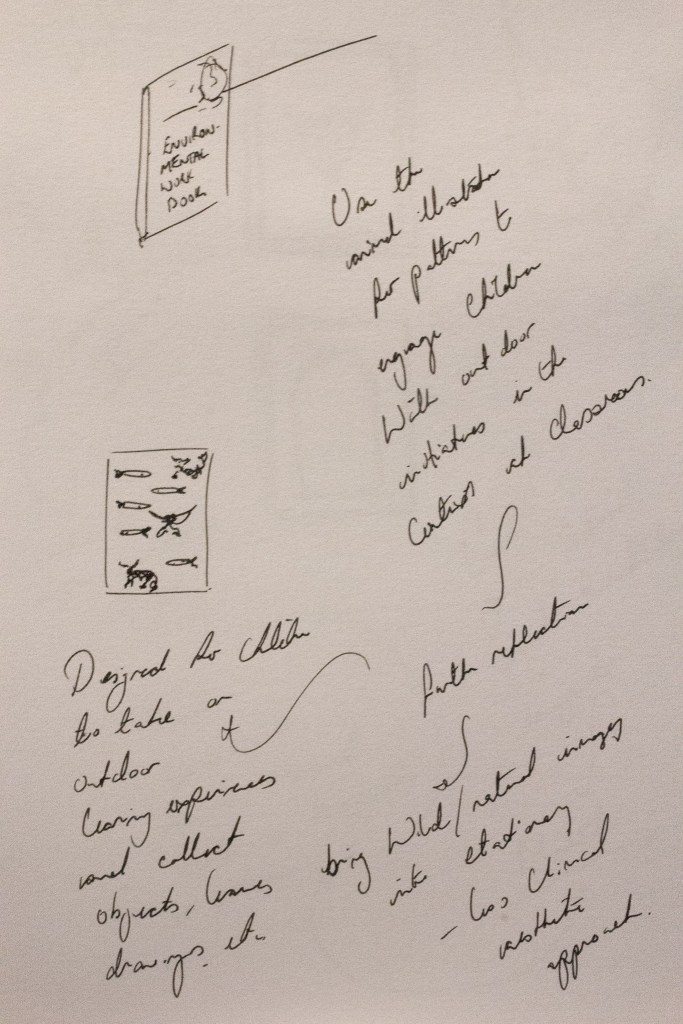 ENVIRON-
MENTAL
WORK
BOOK
Use the
animal illustration
for patterns to
engage children
With out door
initiatives in the
Context of classrooms.
further reflection
bring Wild/natural images
into stationary
- less Clinical
aesthetic
approach.
Designed for children
to take on
outdoor
learning experiences
and collect
objects, leaves
drawings etc.